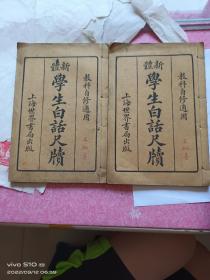 新體
學生白話尺牘
教科自修適用
上海世界書局出版
新體
學生白話尺牘
教科自修適用
上海世界書局出版
vivo S10
2022/09/12 09:55